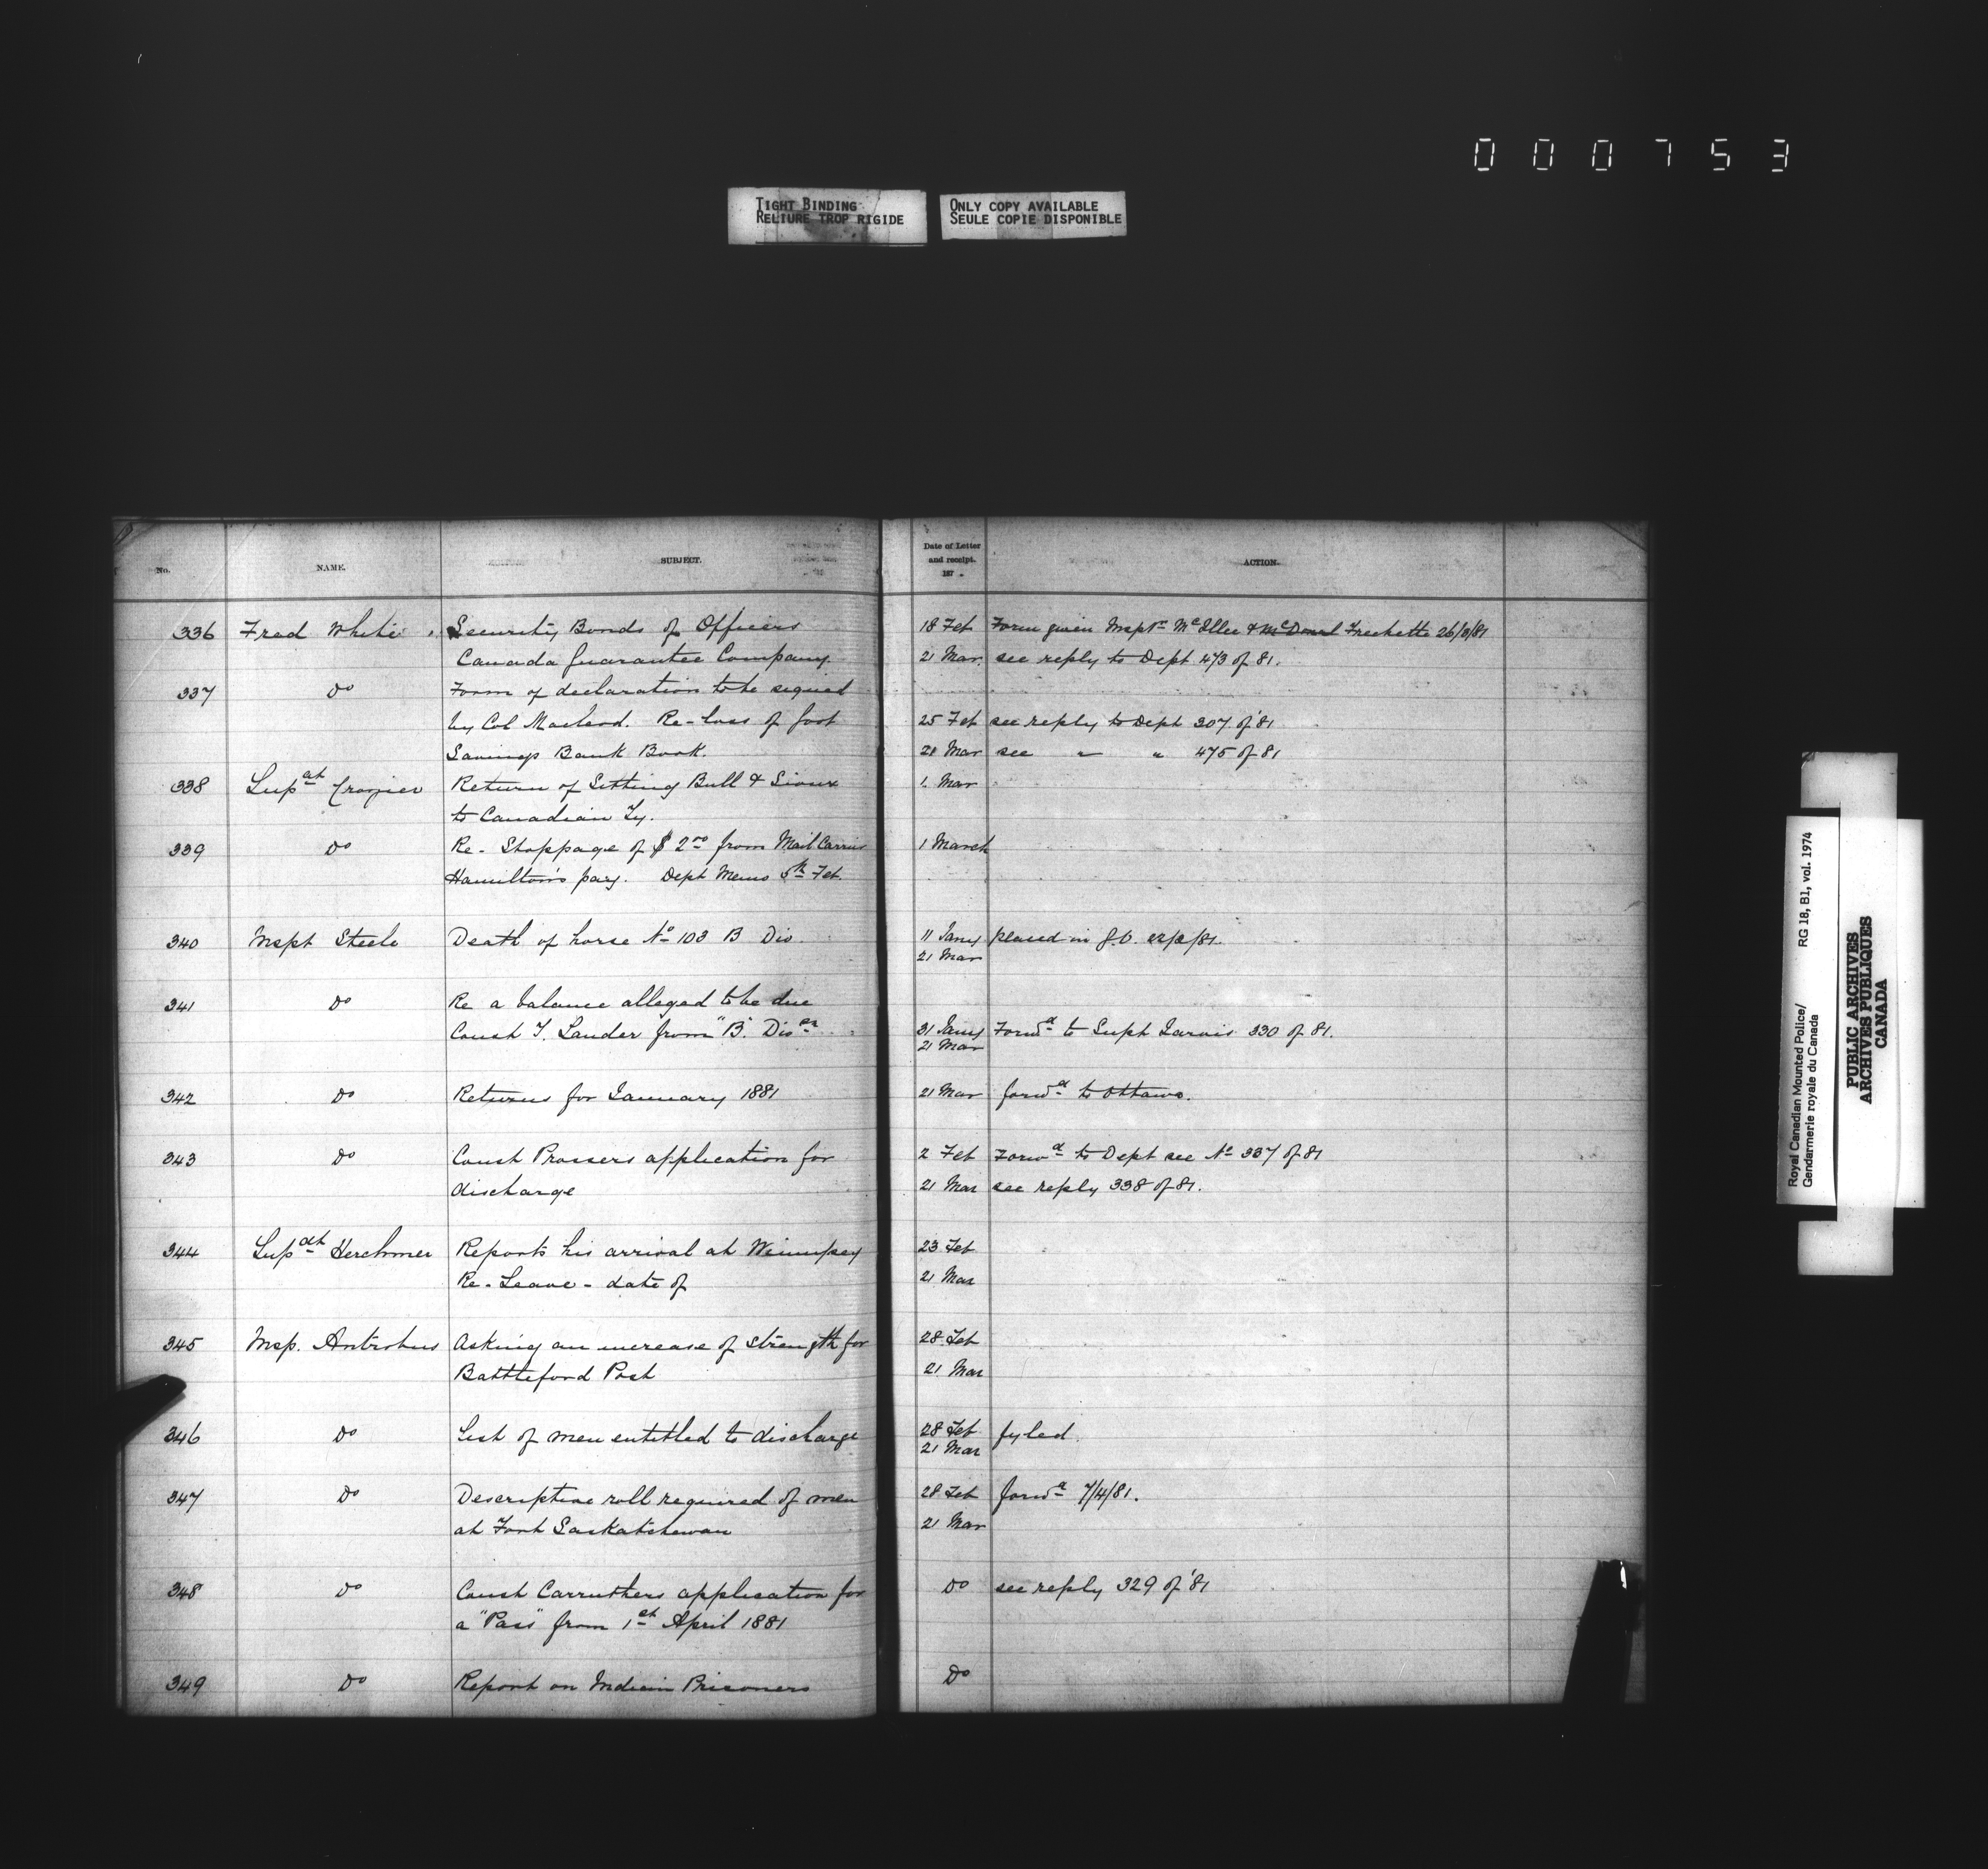 000753
TIGHT BINDING
RELIURE TROP RIGIDE
ONLY COPY AVAILABLE
SEULE COPIE DISPONIBLE
No. NAME. SUBJECT. Date of Letter and receipt. 187 . ACTION.
336 Fred White Security Bonds of Officers 18 Feb Form given Inspr McIllee & McDonl Frechette 26/3/81
Canada Guarantee Company. 21 Mar. see reply to Dept 473 of 81.
337 Do Form of declaration to be signed
by Col Macleod. Re-loss of 25 Feb see reply to Dept 307 of '81
Savings Bank Book. 21 Mar see " " 475 of 81
338 Supdt Crozier Return of Sitting Bull & Sioux 1. Mar
to Canadian Ty.
339 Do Re- Stoppage of $2.00 from Mail Carrier 1 March
Hamilton's pay. Dept Memo 5th Feb.
340 Inspt Steele Death of horse No 103 B Div. 11 Jany placed in G.O.
21 Mar
341 Do Re a balance alleged to be due
Const T. Lauder from "B" Divon 31 Jany Forwd to Supt Jarvis 330 of 81.
21 Mar
342 Do Returns for January 1881 21 Mar forwd to Ottawa.
343 Do Const Prossers application for 2 Feb Forwd to Dept see No 337 of 81
discharge 21 Mar see reply 338 of 81.
344 Supdt Herchmer Reports his arrival at Winnipeg 23 Feb
Re- Leave - date of 21 Mar
345 Insp. Antrobus Asking an increase of strength for 28 Feb
Battleford Post 21 Mar
346 Do List of men entitled to discharge 28 Feb fyled.
21 Mar
347 Do Descriptive roll required of men 28 Feb forwd 7/4/81.
at Fort Saskatchewan 21 Mar
348 Do Const Carruthers application for Do see reply 329 of '81
a "Pass" from 1st April 1881
349 Do Report on Indian Prisoners Do
Royal Canadian Mounted Police/
Gendarmerie royale du Canada
RG 18, B1, vol. 1974
PUBLIC ARCHIVES
ARCHIVES PUBLIQUES
CANADA